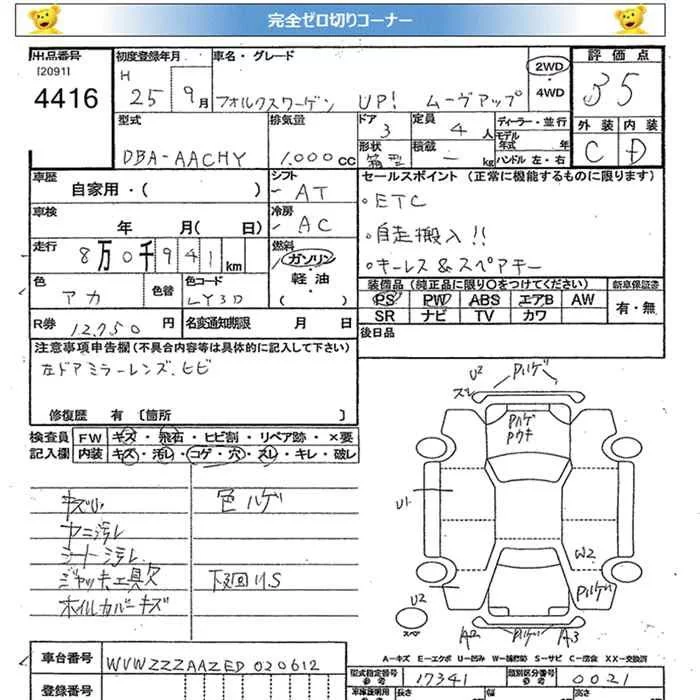 完全ゼロ切りコーナー
出品番号 初度登録年月 車名・グレード 評価点
[2091] H 25年 9月 フォルクスワーゲン UP! ムーヴアップ 2WD 35
4416 4WD
型式 排気量 ドア 3 定員 4人 ディーラー・並行 外装 内装
DBA-AACHY 1,000cc 形状 積載 - kg モデル年式 年 C D
ハンドル 左・右
車歴 自家用・( ) シフト AT セールスポイント (正常に機能するものに限ります)
車検 年 月( 日) 冷房 AC 。ETC
走行 8万0千941km 燃料 ガソリン・軽油・( ) 。自走搬入!!
色 アカ 色替 色コード LY3D 。キーレス&スペアキー
装備品 (純正品に限り○をつけてください) 新車保証書
PS PW ABS エアB AW 有・無
SR ナビ TV カワ
R券 12,750円 名変通知期限 月 日 後日品
注意事項申告欄 (不具合内容等は具体的に記入して下さい)
左ドアミラーレンズ.ヒビ
修復歴 有 〔箇所 〕
検査員 FW キズ・飛石・ヒビ割・リペア跡・×要
記入欄 内装 キズ・汚レ・コゲ・穴・スレ・キレ・破レ
色ハゲ
ヤニ汚レ
シート汚レ
ジャッキ工具欠 下回りS
ホイルカバーキズ
U2 Pハゲ
スレ
Pハゲ
Pウキ
U1
W2
Pハゲ
U2
スペア
A2 Pハゲ A3
A-キズ E-エクボ U-凹み W-補修跡 S-サビ C-腐食 XX-交換済
車台番号 WVWZZZAAZED020612
型式指定番号 17341 類別区分番号 0021
登録番号 長さ 幅 高さ